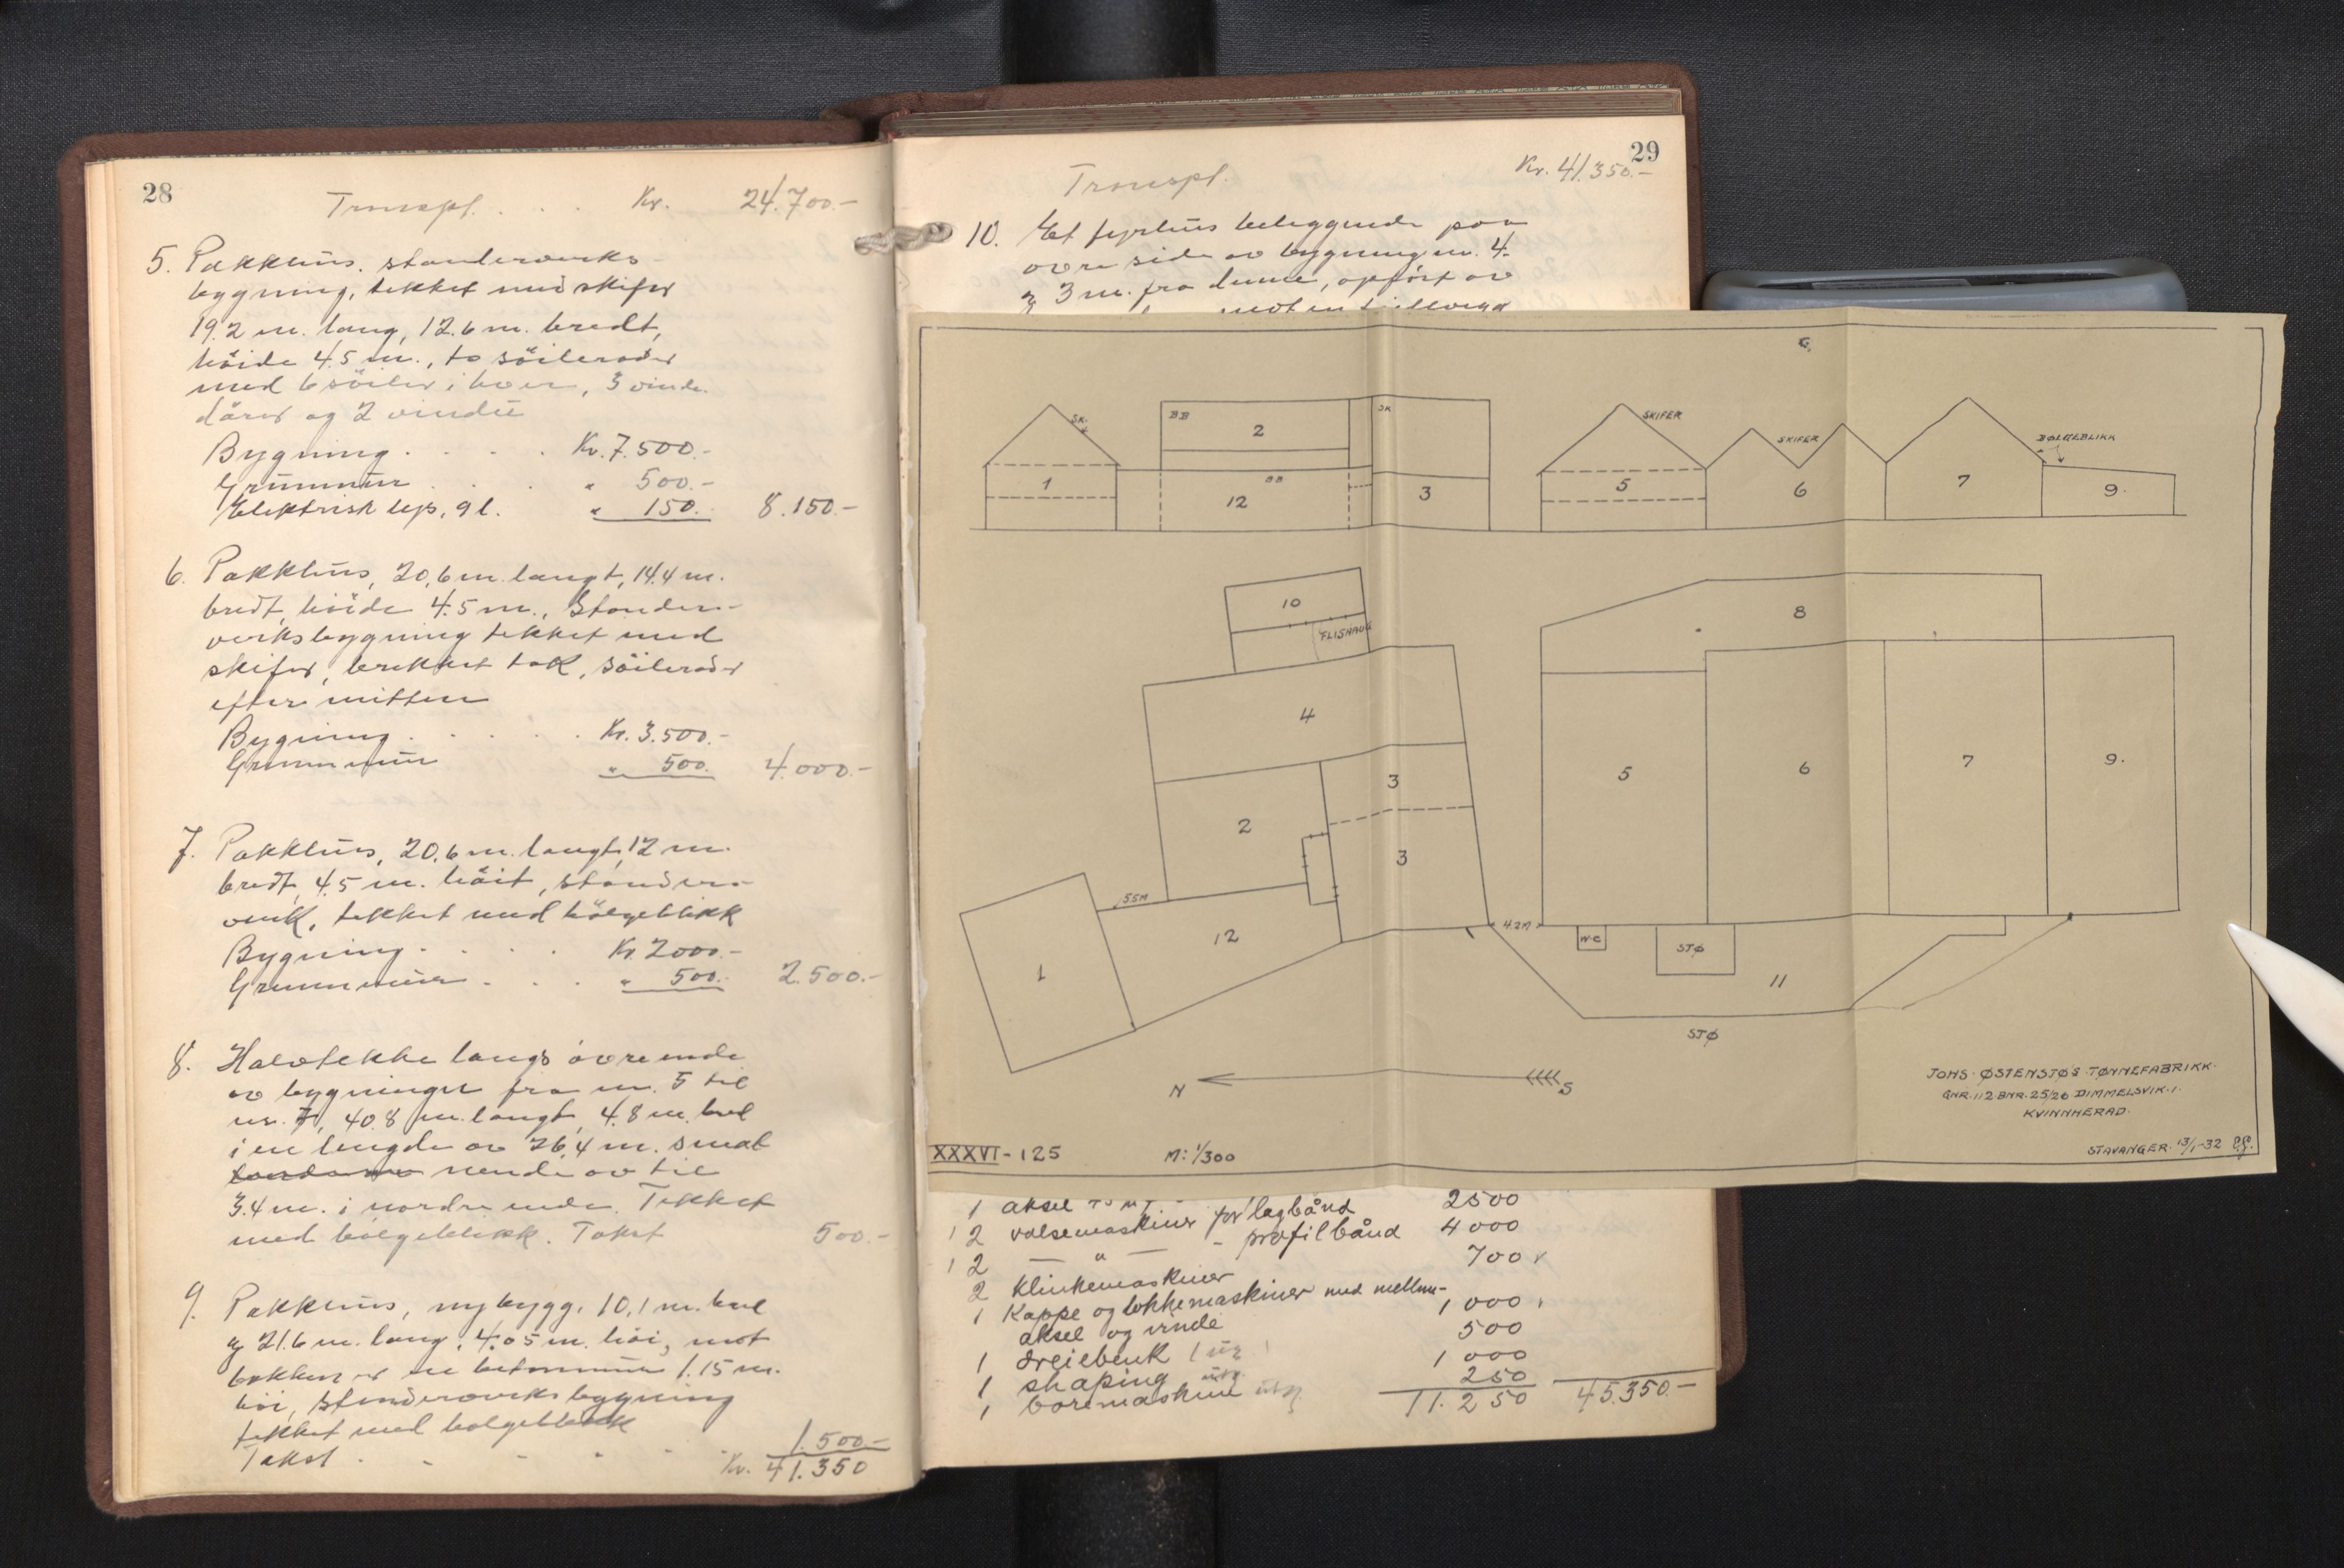 28
Transpl. . . . Kr. 24.700.-
5. Pakkhus. standerverks-
bygning, tekket med skifer
19.2 m. lang, 12.6 m. bredt,
höide 4.5 m., to söilerader
med 6 söiler i hver, 3 vindu.
dører og 2 vindu
Bygning . . . . Kr. 7.500.-
Grunnmur . . . " 500.-
Elektrisk lys, 9 l. " 150.- 8.150.-
6. Pakkhus, 20,6 m. langt, 14.4 m.
bredt, höide 4.5 m., Stander-
verksbygning tekket med
skifer, brekket tak, söilerader
efter mitten
Bygning . . . . Kr. 3.500.-
Grunnmur " 500. 4.000.-
7. Pakkhus, 20,6 m. langt, 12 m.
bredt, 4.5 m. höit, stander-
verk, tekket med bölgeblikk
Bygning . . . . Kr. 2000.-
Grunnmur . . . " 500.- 2.500.-
8. Halvtekke langs övre ende
av bygninger fra nr. 5 til
nr. 7, 40.8 m. langt, 4.8 m. bred
i en lengde av 26,4 m. smal
nende av til
3.4 m. i nordre ende. Tekket
med bölgeblikk. Takst 500.-
9. Pakkhus, nybygg, 10,1 m. bred
og 21.6 m. lang, 4.05 m. höi, mot
bakken er en betonmur 1.15 m.
höi, Standerverksbygning
tekket med bølgeblikk
Takst . - - - 1.500.-
Kr. 41.350
29
Transpl. Kr. 41.350.-
10. Et fyrhus beliggende paa
övre side av bygning nr. 4.
og 3 m. fra denne, opført av
G.
SK. BB 2 SK SKIFER SKIFER BØLGEBLIKK
1 BB 12 3 5 6 7 9.
10
FLISHAUG
8
4
3
2
3
5 6 7 9.
5.5M
12
1
4.2M
WC STØ
11
STØ
N S
JOHS. ØSTENSJØ'S TØNNEFABRIKK.
GNR. 112 BNR. 25/26 DIMMELSVIK. I.
KVINNHERAD.
STAVANGER. 13/1-32
XXXVI - 125 M: 1/300
1 aksel 2500
1 2 valsemaskiner for lagbånd 4000
1 2 — " — - profilbånd 700
2 Klinkemaskiner
1 Kappe og lokkemaskiner med mellem- 1 000
aksel og vinde 500
1 dreiebenk 1 000
1 shaping 250
1 boremaskine 11.250 45.350.-